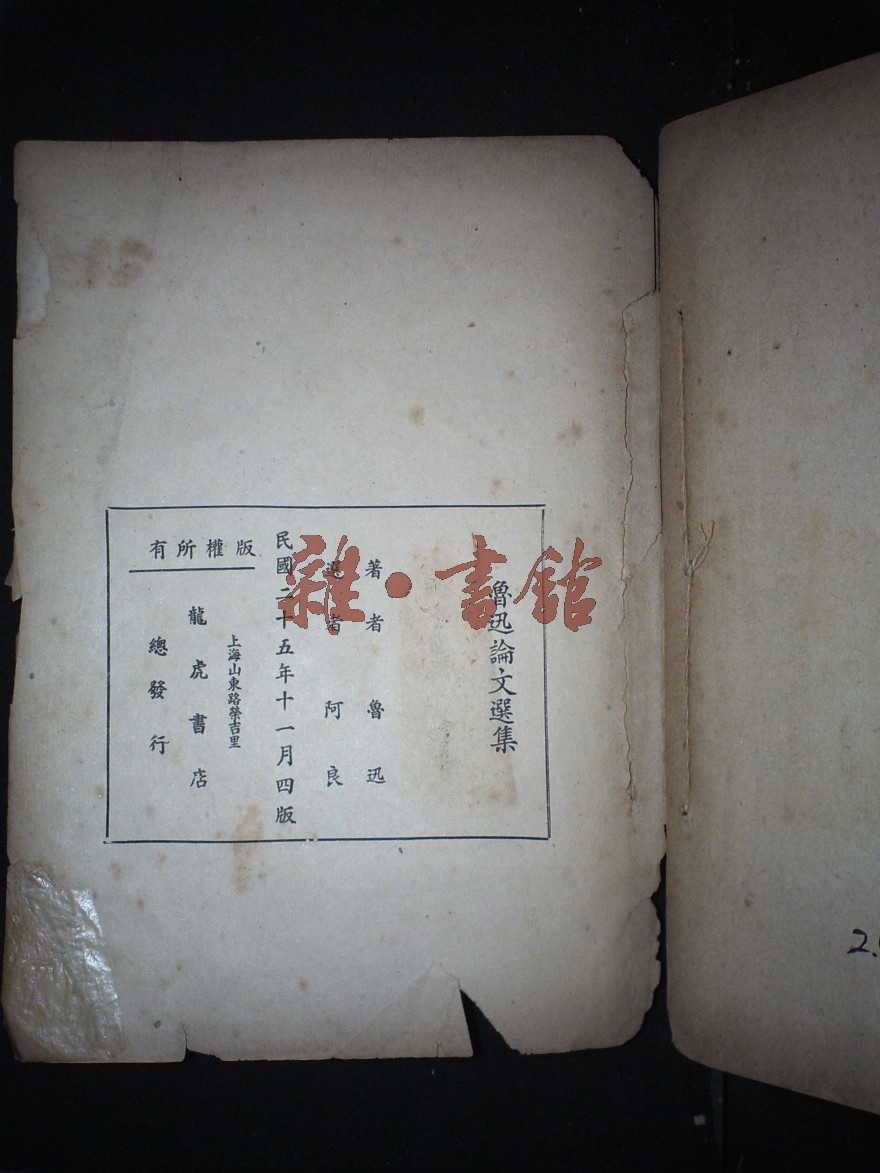 魯迅論文選集
著者 魯迅
選者 阿良
民國二十五年十一月四版
版權所有
上海山東路榮吉里
龍虎書店
總發行
雜·書館
2.